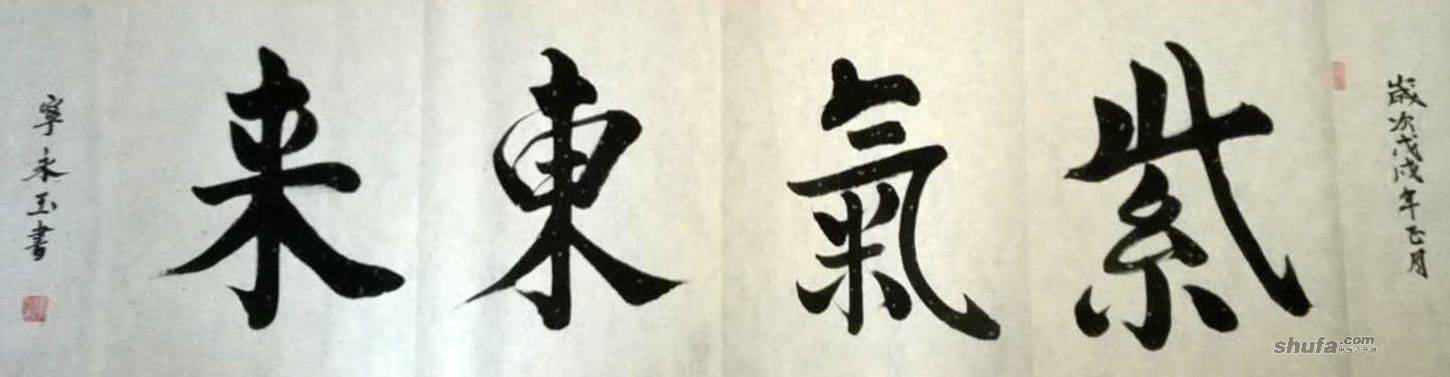 歲次戊戌年正月
紫氣東来
寧永玉書
shufa.com